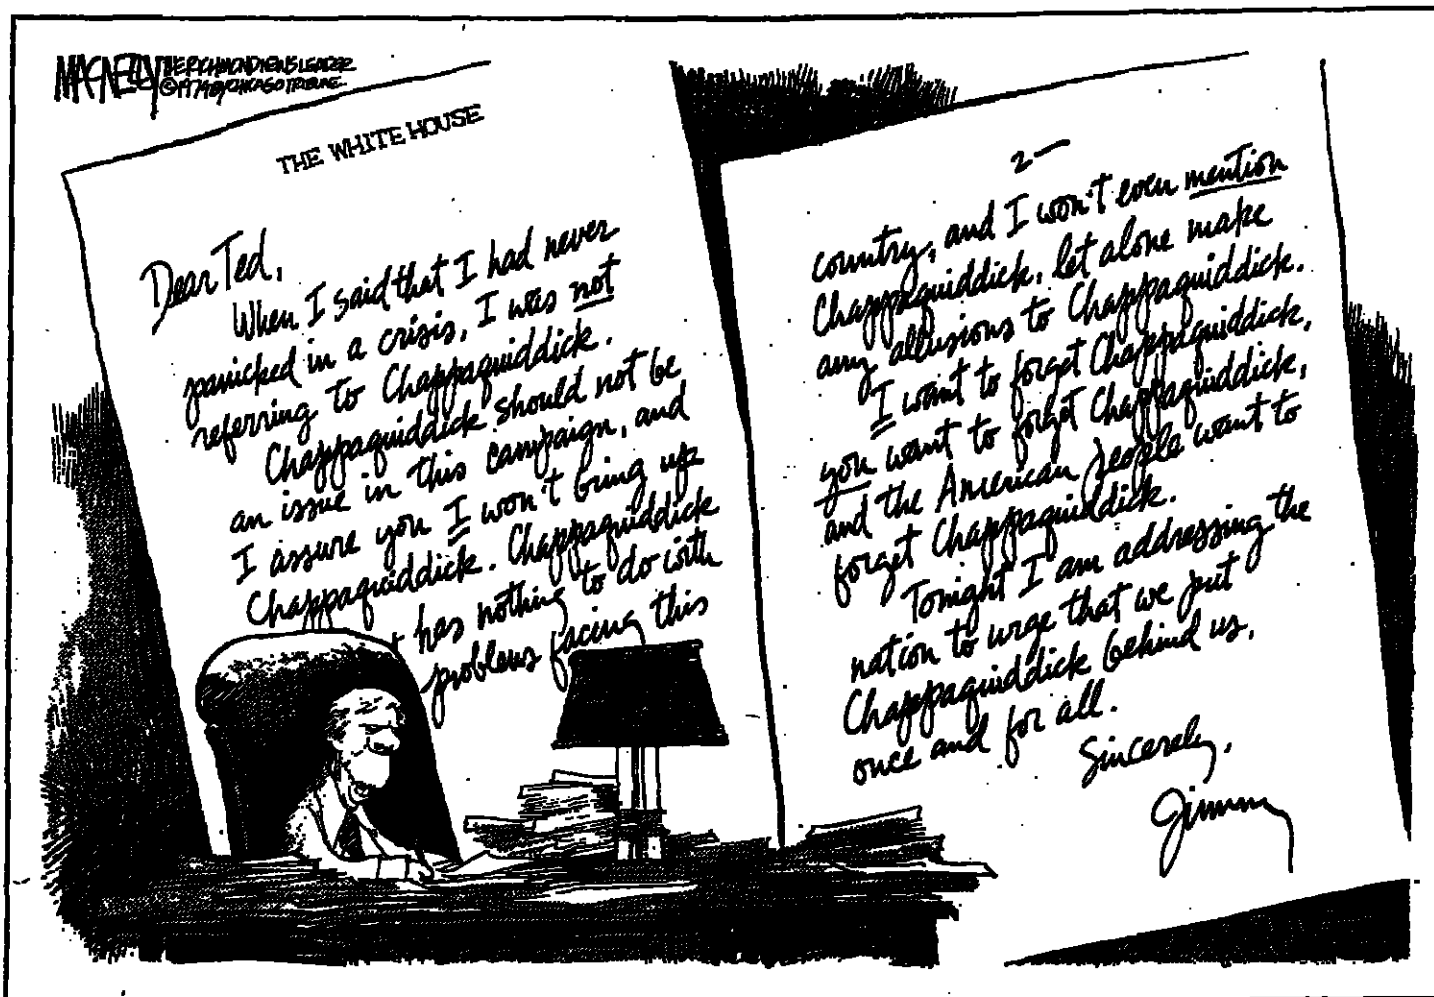 MACNELLY THE RICHMOND NEWS LEADER
©1979 BY CHICAGO TRIBUNE
THE WHITE HOUSE
Dear Ted,
When I said that I had never
panicked in a crisis, I was not
referring to Chappaquiddick.
Chappaquiddick should not be
an issue in this campaign, and
I assure you I won't bring up
Chappaquiddick. Chappaquiddick
has nothing to do with
problems facing this
2—
country, and I won't even mention
Chappaquiddick, let alone make
any allusions to Chappaquiddick.
I want to forget Chappaquiddick,
you want to forget Chappaquiddick,
and the American people want to
forget Chappaquiddick.
Tonight I am addressing the
nation to urge that we put
Chappaquiddick behind us,
once and for all.
Sincerely,
Jimmy